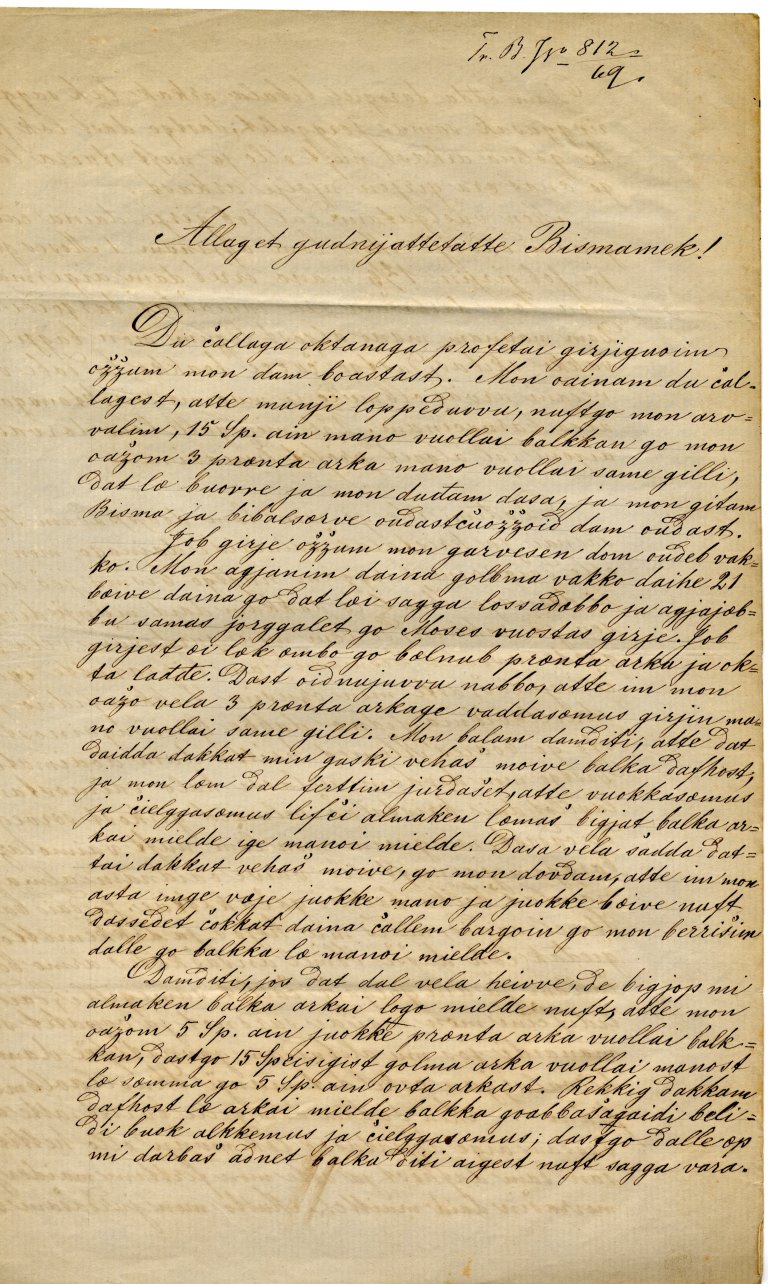 Tr. B. Jno 812
69.
Allaget gudnijattetatte Bismamek!
Du čallaga oktanaga profetai girjiguoim
ožžum mon dam boastast. Mon oainam du čal-
lagest, atte munji loppeduvvu, nuftgo mon arv-
valim, 15 Sp. ain mano vuollai balkkan go mon
oažom 3 prænta arka mano vuollai same gilli,
dat læ buorre ja mon duttam dasa, ja mon gitam
Bisma ja bibalsærve oudastčuožžoid dam oudast.
Job girje ožžum mon garvesen dom oudeb vak-
ko. Mon agjanim daina golbma vakko daihe 21
bæive daina go dat læi sagga lossadæbbo ja agjajæb-
bu samas jorggalet go Moses vuostas girje. Job
girjest æi læk æmbo go bælnub prænta arka ja ok-
ta ladde. Dast oidnujuvvu nabbo, atte im mon
oažo vela 3 prænta arkage vaddasæmus girjin ma-
no vuollai same gilli. Mon balam damditi, atte dat
daidda dakkat min gaski vehaš moive balka dafhost,
ja mon læm dal ferttim jurdašet, atte vuokkasæmus
ja čielggasæmus lifči almaken læmaš bigjat balka ar-
kai mielde ige manoi mielde. Dasa vela šadda dat-
tai dakkat vehaš moive, go mon dovdam, atte im mon
asta imge væje juokke mano ja juokke bæive nuft
dassedet čokkat daina čallem bargoin go mon berrišim
dalle go balkka læ manoi mielde.
Damditi, jos dat dal vela heivve, de bigjop mi
almaken balka arkai logo mielde nuft, atte mon
oažom 5 Sp. ain juokke prænta arka vuollai balk-
kan, dastgo 15 Speisigist golma arka vuollai manost
læ sæmma go 5 Sp. ain ovta arkast. Rekkig dakkam
dafhost læ arkai mielde balkka goabbašagaidi beli-
di buok alkkemus ja čielggasæmus; dastgo dalle æp
mi darbaš adnet balka diti aigest nuft sagga vara.